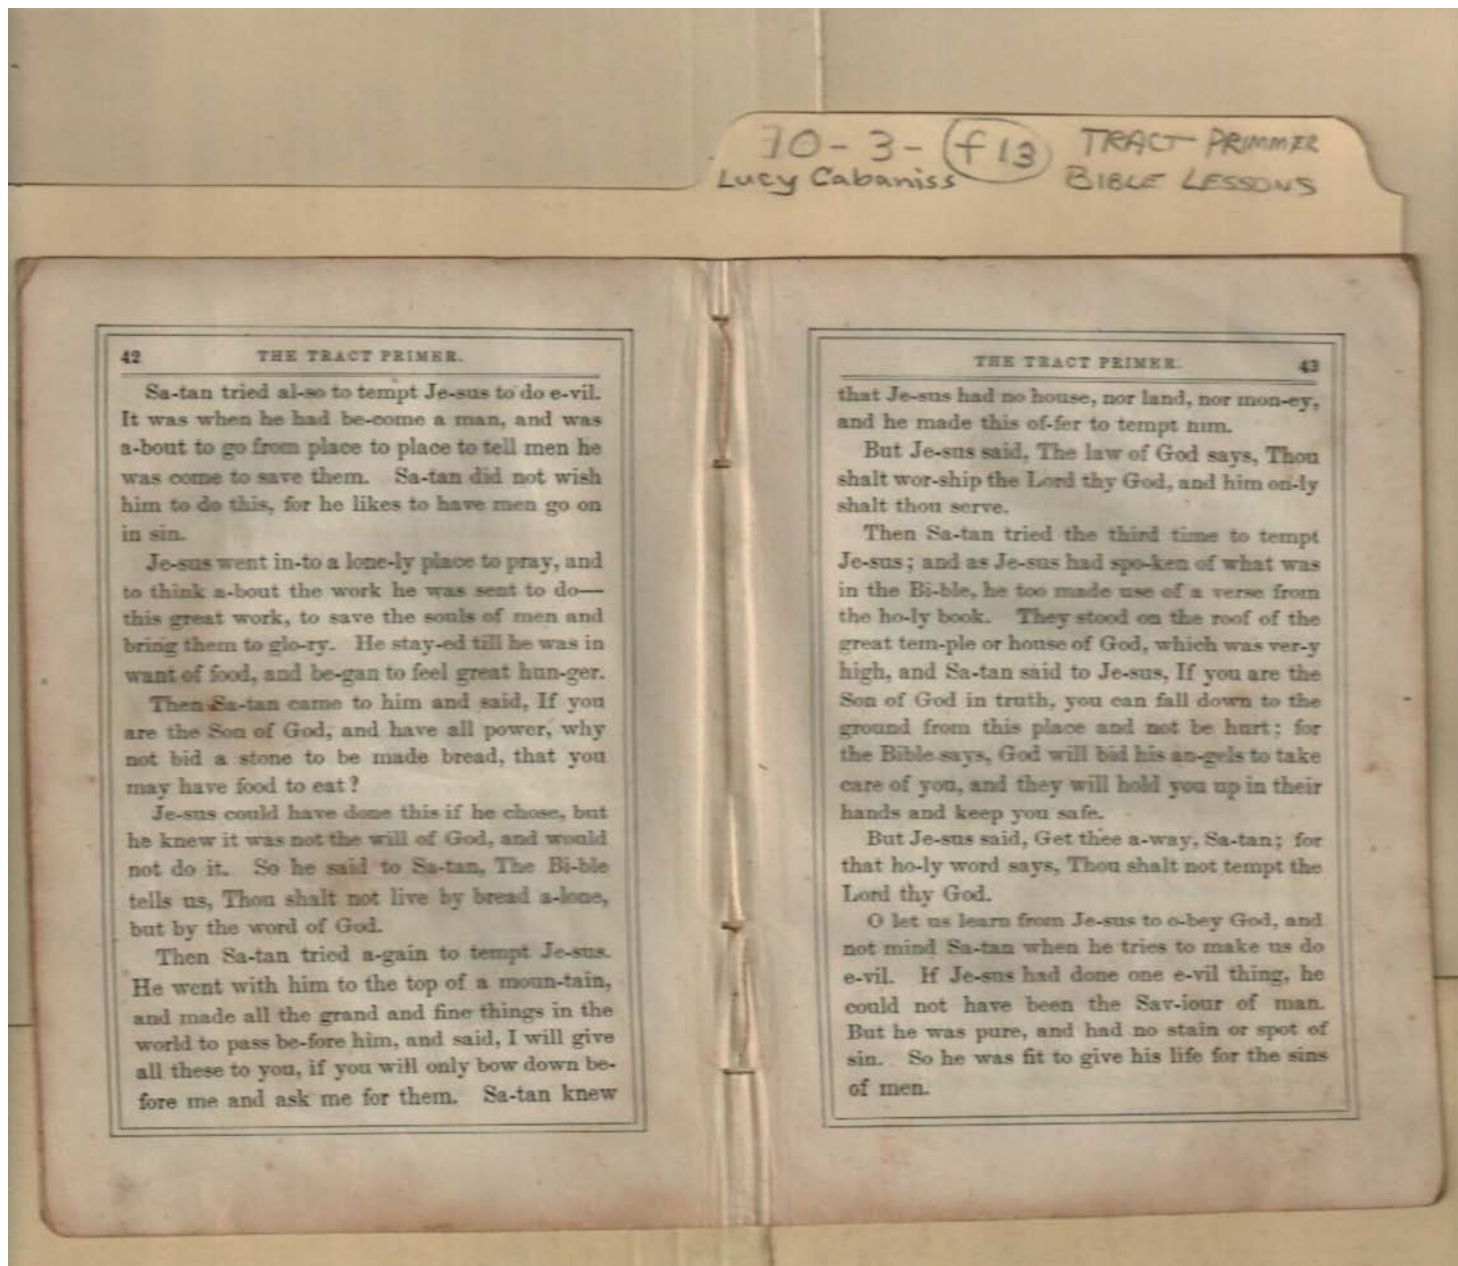 70-3-f13 TRACT PRIMMER
Lucy Cabaniss BIBLE LESSONS
42 THE TRACT PRIMER.
Sa-tan tried al-so to tempt Je-sus to do e-vil.
It was when he had be-come a man, and was
a-bout to go from place to place to tell men he
was come to save them. Sa-tan did not wish
him to do this, for he likes to have men go on
in sin.
Je-sus went in-to a lone-ly place to pray, and
to think a-bout the work he was sent to do—
this great work, to save the souls of men and
bring them to glo-ry. He stay-ed till he was in
want of food, and be-gan to feel great hun-ger.
Then Sa-tan came to him and said, If you
are the Son of God, and have all power, why
not bid a stone to be made bread, that you
may have food to eat?
Je-sus could have done this if he chose, but
he knew it was not the will of God, and would
not do it. So he said to Sa-tan, The Bi-ble
tells us, Thou shalt not live by bread a-lone,
but by the word of God.
Then Sa-tan tried a-gain to tempt Je-sus.
He went with him to the top of a moun-tain,
and made all the grand and fine things in the
world to pass be-fore him, and said, I will give
all these to you, if you will only bow down be-
fore me and ask me for them. Sa-tan knew
THE TRACT PRIMER. 43
that Je-sus had no house, nor land, nor mon-ey,
and he made this of-fer to tempt him.
But Je-sus said, The law of God says, Thou
shalt wor-ship the Lord thy God, and him on-ly
shalt thou serve.
Then Sa-tan tried the third time to tempt
Je-sus; and as Je-sus had spo-ken of what was
in the Bi-ble, he too made use of a verse from
the ho-ly book. They stood on the roof of the
great tem-ple or house of God, which was ver-y
high, and Sa-tan said to Je-sus, If you are the
Son of God in truth, you can fall down to the
ground from this place and not be hurt; for
the Bible says, God will bid his an-gels to take
care of you, and they will hold you up in their
hands and keep you safe.
But Je-sus said, Get thee a-way, Sa-tan; for
that ho-ly word says, Thou shalt not tempt the
Lord thy God.
O let us learn from Je-sus to o-bey God, and
not mind Sa-tan when he tries to make us do
e-vil. If Je-sus had done one e-vil thing, he
could not have been the Sav-iour of man.
But he was pure, and had no stain or spot of
sin. So he was fit to give his life for the sins
of men.